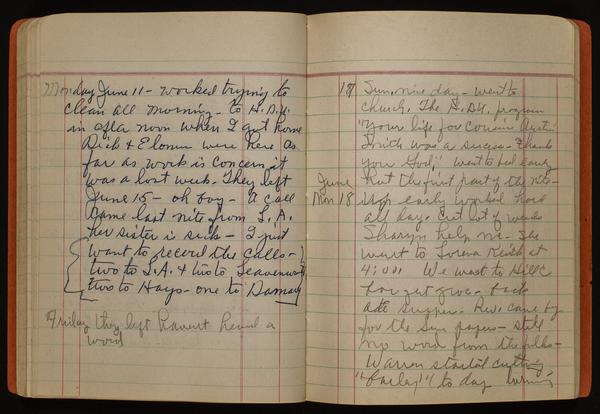 Monday June 11 - worked trying to
clean all morning - to H.D.U.
in after noon when I got home
Dick & Elonun were here as
far as work is concern it
was a lost week. They left
June 15 - oh boy - a call
came last nite from L.A.
her sister is sick - I just
want to record the calls -
two to L.A. & two to Leavenw
two to Hays - one to Damar
Friday they left havent heard a
word
17 Sun. nice day - went to
church. The H.D.U. program
"Your life for Cousin
was a sucess - thank
you God," went to bed early
but the first part of the nite -
June
Mon 18 Up early worked hard
all day. Cut lot of weeds
Sharyn help me - She
went to Lorena Reich at
4:00. We went to Hill C
for get groc - back
ate supper. Rev. came by
for the Sun papers - still
no word from the folks -
Warren started cutting
"barley" to day turning